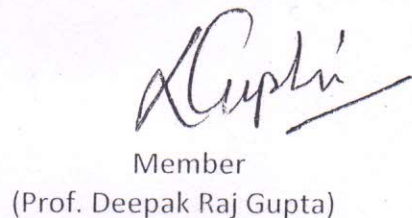 Gupta
Member
(Prof. Deepak Raj Gupta)